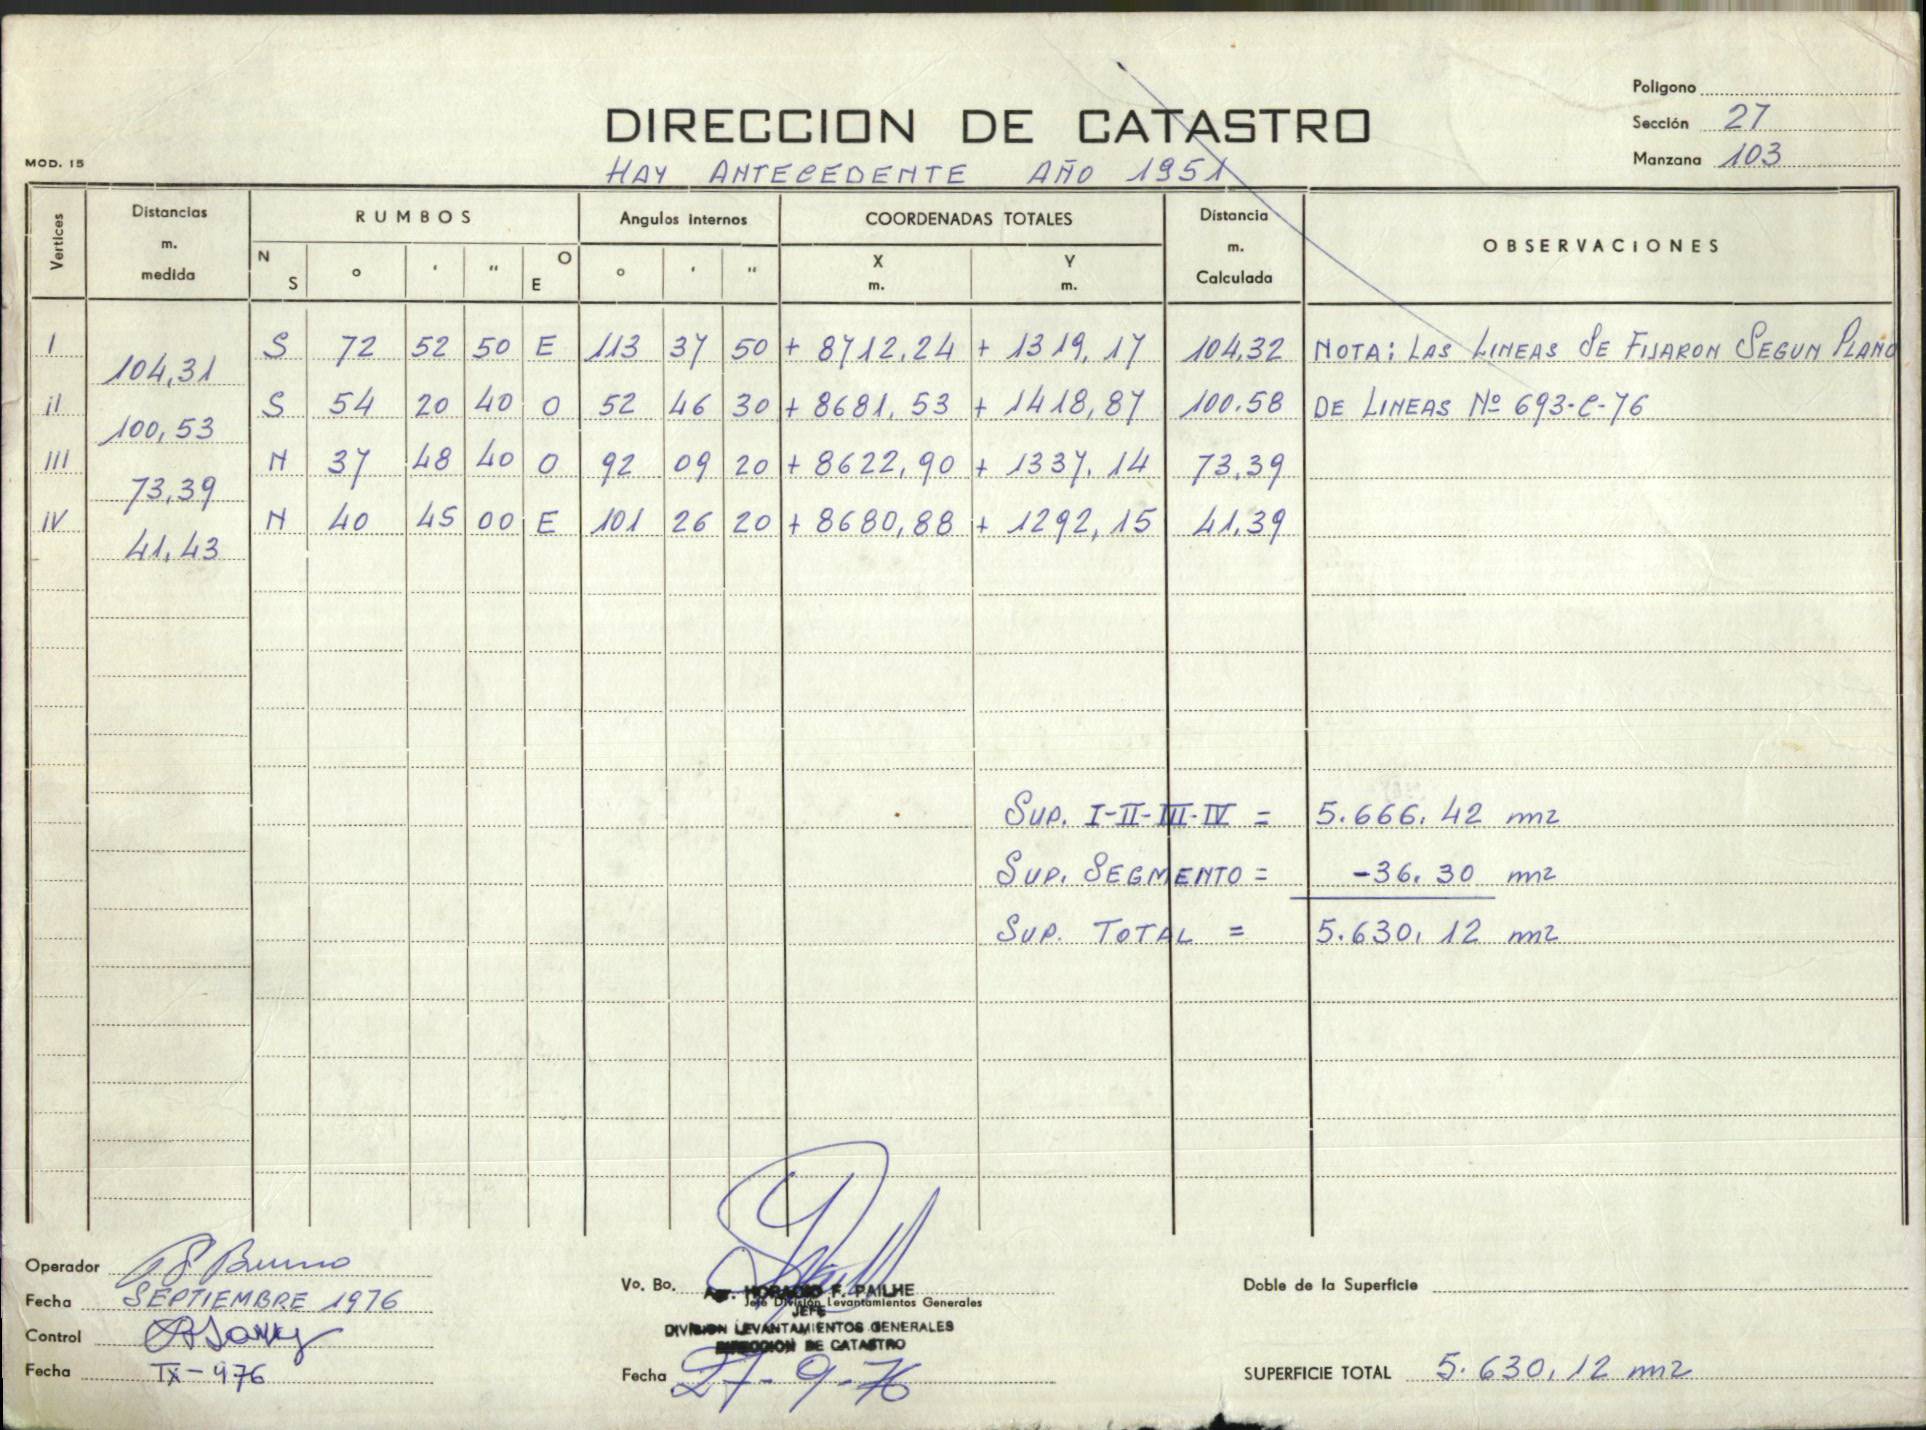 Poligono
DIRECCION DE CATASTRO
Sección 27
MOD. 15
HAY ANTECEDENTE AÑO 1951
Manzana 103
Vertices
Distancias m. medida
RUMBOS
Angulos internos
COORDENADAS TOTALES
Distancia m. Calculada
OBSERVACIONES
N S ° ' " O E ° ' " X m. Y m.
I S 72 52 50 E 113 37 50 + 8712,24 + 1319,17 104,32 NOTA: LAS LINEAS SE FIJARON SEGUN PLANO
104,31
II S 54 20 40 O 52 46 30 + 8681,53 + 1418,87 100.58 DE LINEAS Nº 693-C-76
100,53
III N 37 48 40 O 92 09 20 + 8622,90 + 1337,14 73,39
73,39
IV N 40 45 00 E 101 26 20 + 8680,88 + 1292,15 41,39
41,43
SUP. I-II-III-IV = 5.666,42 m2
SUP. SEGMENTO = -36.30 m2
SUP. TOTAL = 5.630,12 m2
Operador Bruno
Fecha SEPTIEMBRE 1976
Control
Fecha IX-976
Vo. Bo.
HORACIO F. PAILHE
Jefe División Levantamientos Generales
JEFE
DIVISION LEVANTAMIENTOS GENERALES
DIRECCION DE CATASTRO
Fecha 27-9-76
Doble de la Superficie
SUPERFICIE TOTAL 5.630,12 m2